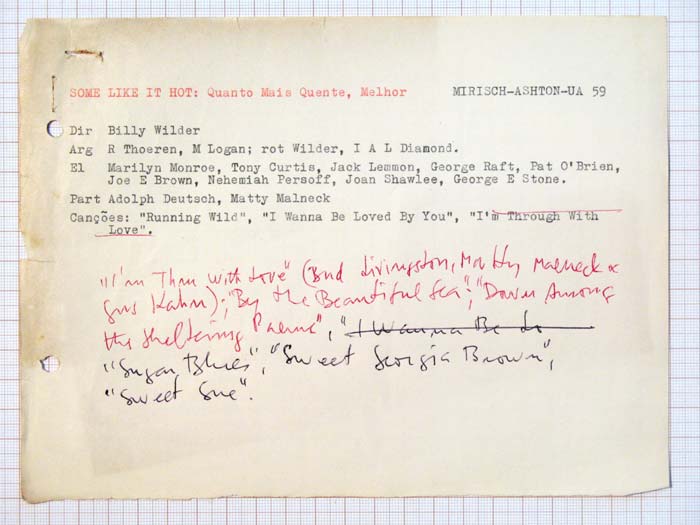 SOME LIKE IT HOT: Quanto Mais Quente, Melhor MIRISCH-ASHTON-UA 59
Dir Billy Wilder
Arg R Thoeren, M Logan; rot Wilder, I A L Diamond.
El Marilyn Monroe, Tony Curtis, Jack Lemmon, George Raft, Pat O'Brien,
Joe E Brown, Nehemiah Persoff, Joan Shawlee, George E Stone.
Part Adolph Deutsch, Matty Malneck
Canções: "Running Wild", "I Wanna Be Loved By You", "I'm Through With
Love".
"I'm Thru With Love" (Bud Livingston, Matty Malneck &
Gus Kahn); "By the Beautiful Sea"; "Down Among
the Sheltering Palms", "I Wanna Be Lo
"Sugar Blues", "Sweet Georgia Brown",
"Sweet Sue".